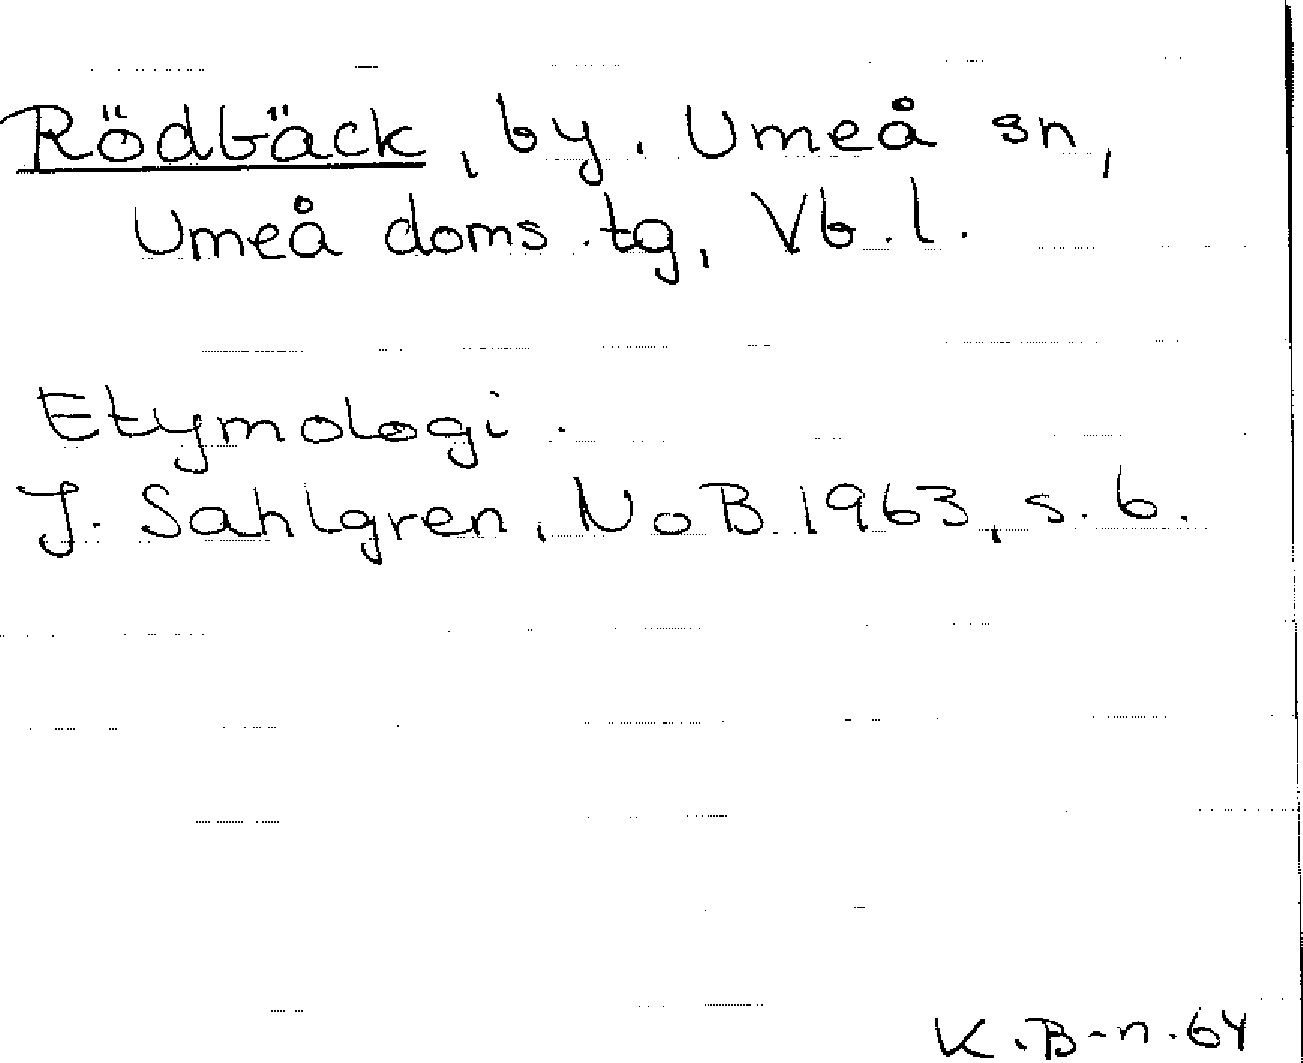 Rödbäck, by. Umeå sn,
Umeå doms.tg, Vb.l.
Etymologi.
J. Sahlgren, NoB 1963, s. 6.
K.B-n.64